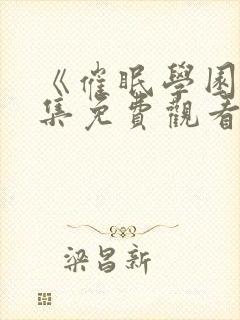 《催眠學園
集免費觀看
梁昌新